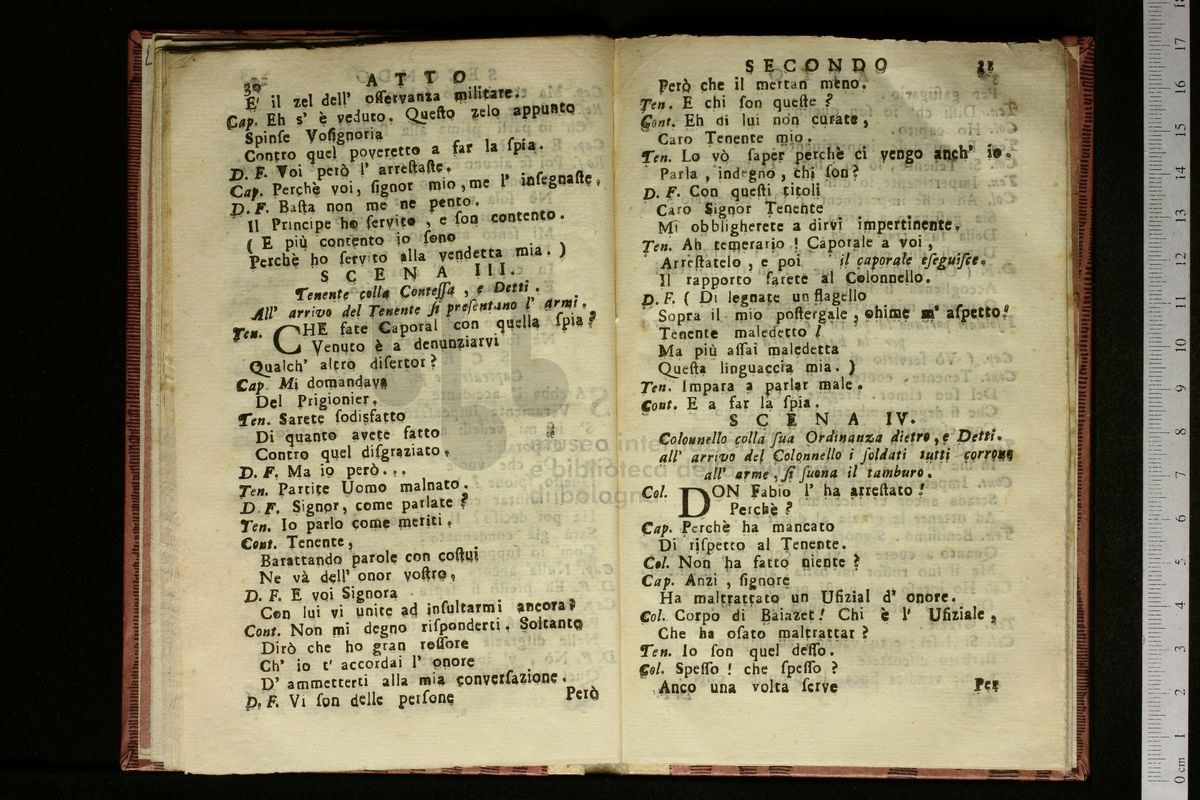 30 ATTO
E' il zel dell' oſſervanza militare.
Cap. Eh s' è veduto. Queſto zelo appunto
Spinſe Voſignoria
Contro quel poveretto a far la ſpia.
D. F. Voi però l' arreſtaſte.
Cap. Perchè voi, ſignor mio, me l' inſegnaſte,
D. F. Baſta non me ne pento.
Il Principe ho ſervito, e ſon contento.
( E più contento io ſono
Perchè ho ſervito alla vendetta mia. )
SCENA III.
Tenente colla Conteſſa, e Detti.
All' arrivo del Tenente ſi preſentano l' armi.
Ten. CHE fate Caporal con quella ſpia?
Venuto è a denunziarvi
Qualch' altro diſertor?
Cap. Mi domandava
Del Prigionier.
Ten. Sarete ſodisfatto
Di quanto avete fatto
Contro quel diſgraziato.
D. F. Ma io però...
Ten. Partite Uomo malnato.
D. F. Signor, come parlate?
Ten. Io parlo come meriti.
Cont. Tenente,
Barattando parole con coſtui
Ne và dell' onor voſtro.
D. F. E voi Signora
Con lui vi unite ad inſultarmi ancora?
Cont. Non mi degno riſponderti. Soltanto
Dirò che ho gran roſſore
Ch' io t' accordai l' onore
D' ammetterti alla mia converſazione.
D. F. Vi ſon delle perſone
Però
SECONDO 31
Però che il mertan meno.
Ten. E chi ſon queſte?
Cont. Eh di lui non curate,
Caro Tenente mio.
Ten. Lo vò ſaper perchè ci vengo anch' io.
Parla, indegno, chi ſon?
D. F. Con queſti titoli
Caro Signor Tenente
Mi obbligherete a dirvi impertinente.
Ten. Ah temerario! Caporale a voi,
Arreſtatelo, e poi il caporale eſeguiſce.
Il rapporto farete al Colonnello.
D. F. ( Di legnate un flagello
Sopra il mio poſtergale, ohime m' aſpetto!
Tenente maledetto!
Ma più aſſai maledetta
Queſta linguaccia mia. )
Ten. Impara a parlar male.
Cont. E a far la ſpia.
SCENA IV.
Colonnello colla ſua Ordinanza dietro, e Detti.
all' arrivo del Colonnello i ſoldati tutti corrono
all' arme, ſi ſuona il tamburo.
Col. DON Fabio l' ha arreſtato!
Perchè?
Cap. Perchè ha mancato
Di riſpetto al Tenente.
Col. Non ha fatto niente?
Cap. Anzi, ſignore
Ha maltrattato un Ufizial d' onore.
Col. Corpo di Baiazet! Chi è l' Ufiziale,
Che ha oſato maltrattar?
Ten. Io ſon quel deſſo.
Col. Speſſo! che ſpeſſo?
Anco una volta ſerve
Per